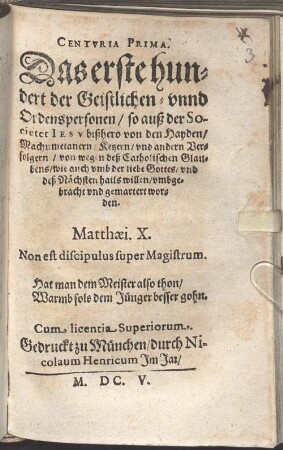 CENTVRIA PRIMA.
3
Das erste hun-
dert der Geistlichen/ vnnd
Ordenspersonen/ so auß der So-
cietet IESV bißhero von den Hayden/
Machumetanern/ Ketzern/ vnd andern Ver-
folgern/ von wegen deß Catholischen Glau-
bens/ wie auch vmb der liebe Gottes/ vnd
deß Nächsten hails willen/ vmbge-
bracht vnd gemartert wor-
den.
Matthæi. X.
Non est discipulus super Magistrum.
Hat man dem Meister also thon/
Warmb sols dem Jünger besser gohn.
Cum licentia Superiorum.
Gedruckt zu München/ durch Ni-
colaum Henricum Im Jar/
M. DC. V.